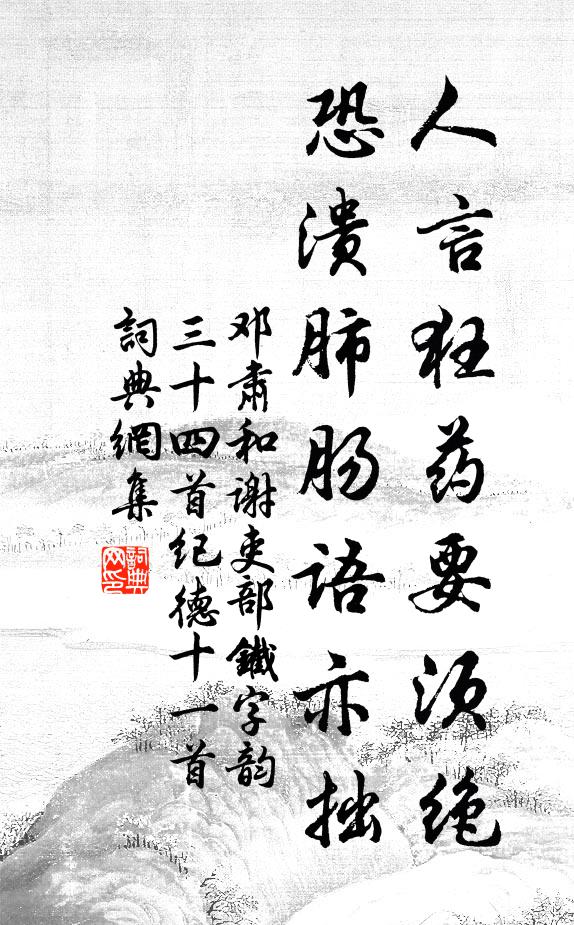 人言狂药要须绝
恐溃肺肠语亦拙
邓肃和谢吏部鐵字韵
三十四首纪德十一首
詞典網集
詞典
网印